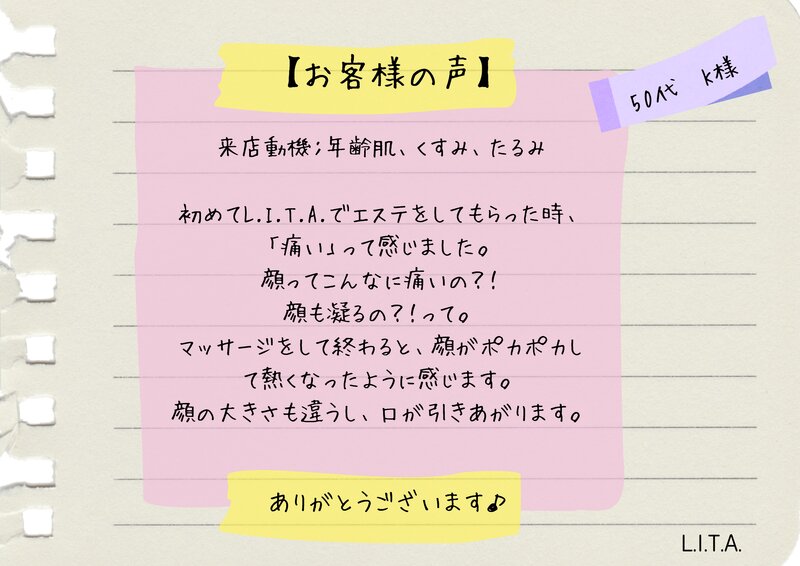 【お客様の声】
50代 K様
来店動機;年齢肌、くすみ、たるみ
初めてL.I.T.A.でエステをしてもらった時、
「痛い」って感じました。
顔ってこんなに痛いの?!
顔も凝るの?!って。
マッサージをして終わると、顔がポカポカし
て熱くなったように感じます。
顔の大きさも違うし、口が引きあがります。
ありがとうございます♪
L.I.T.A.